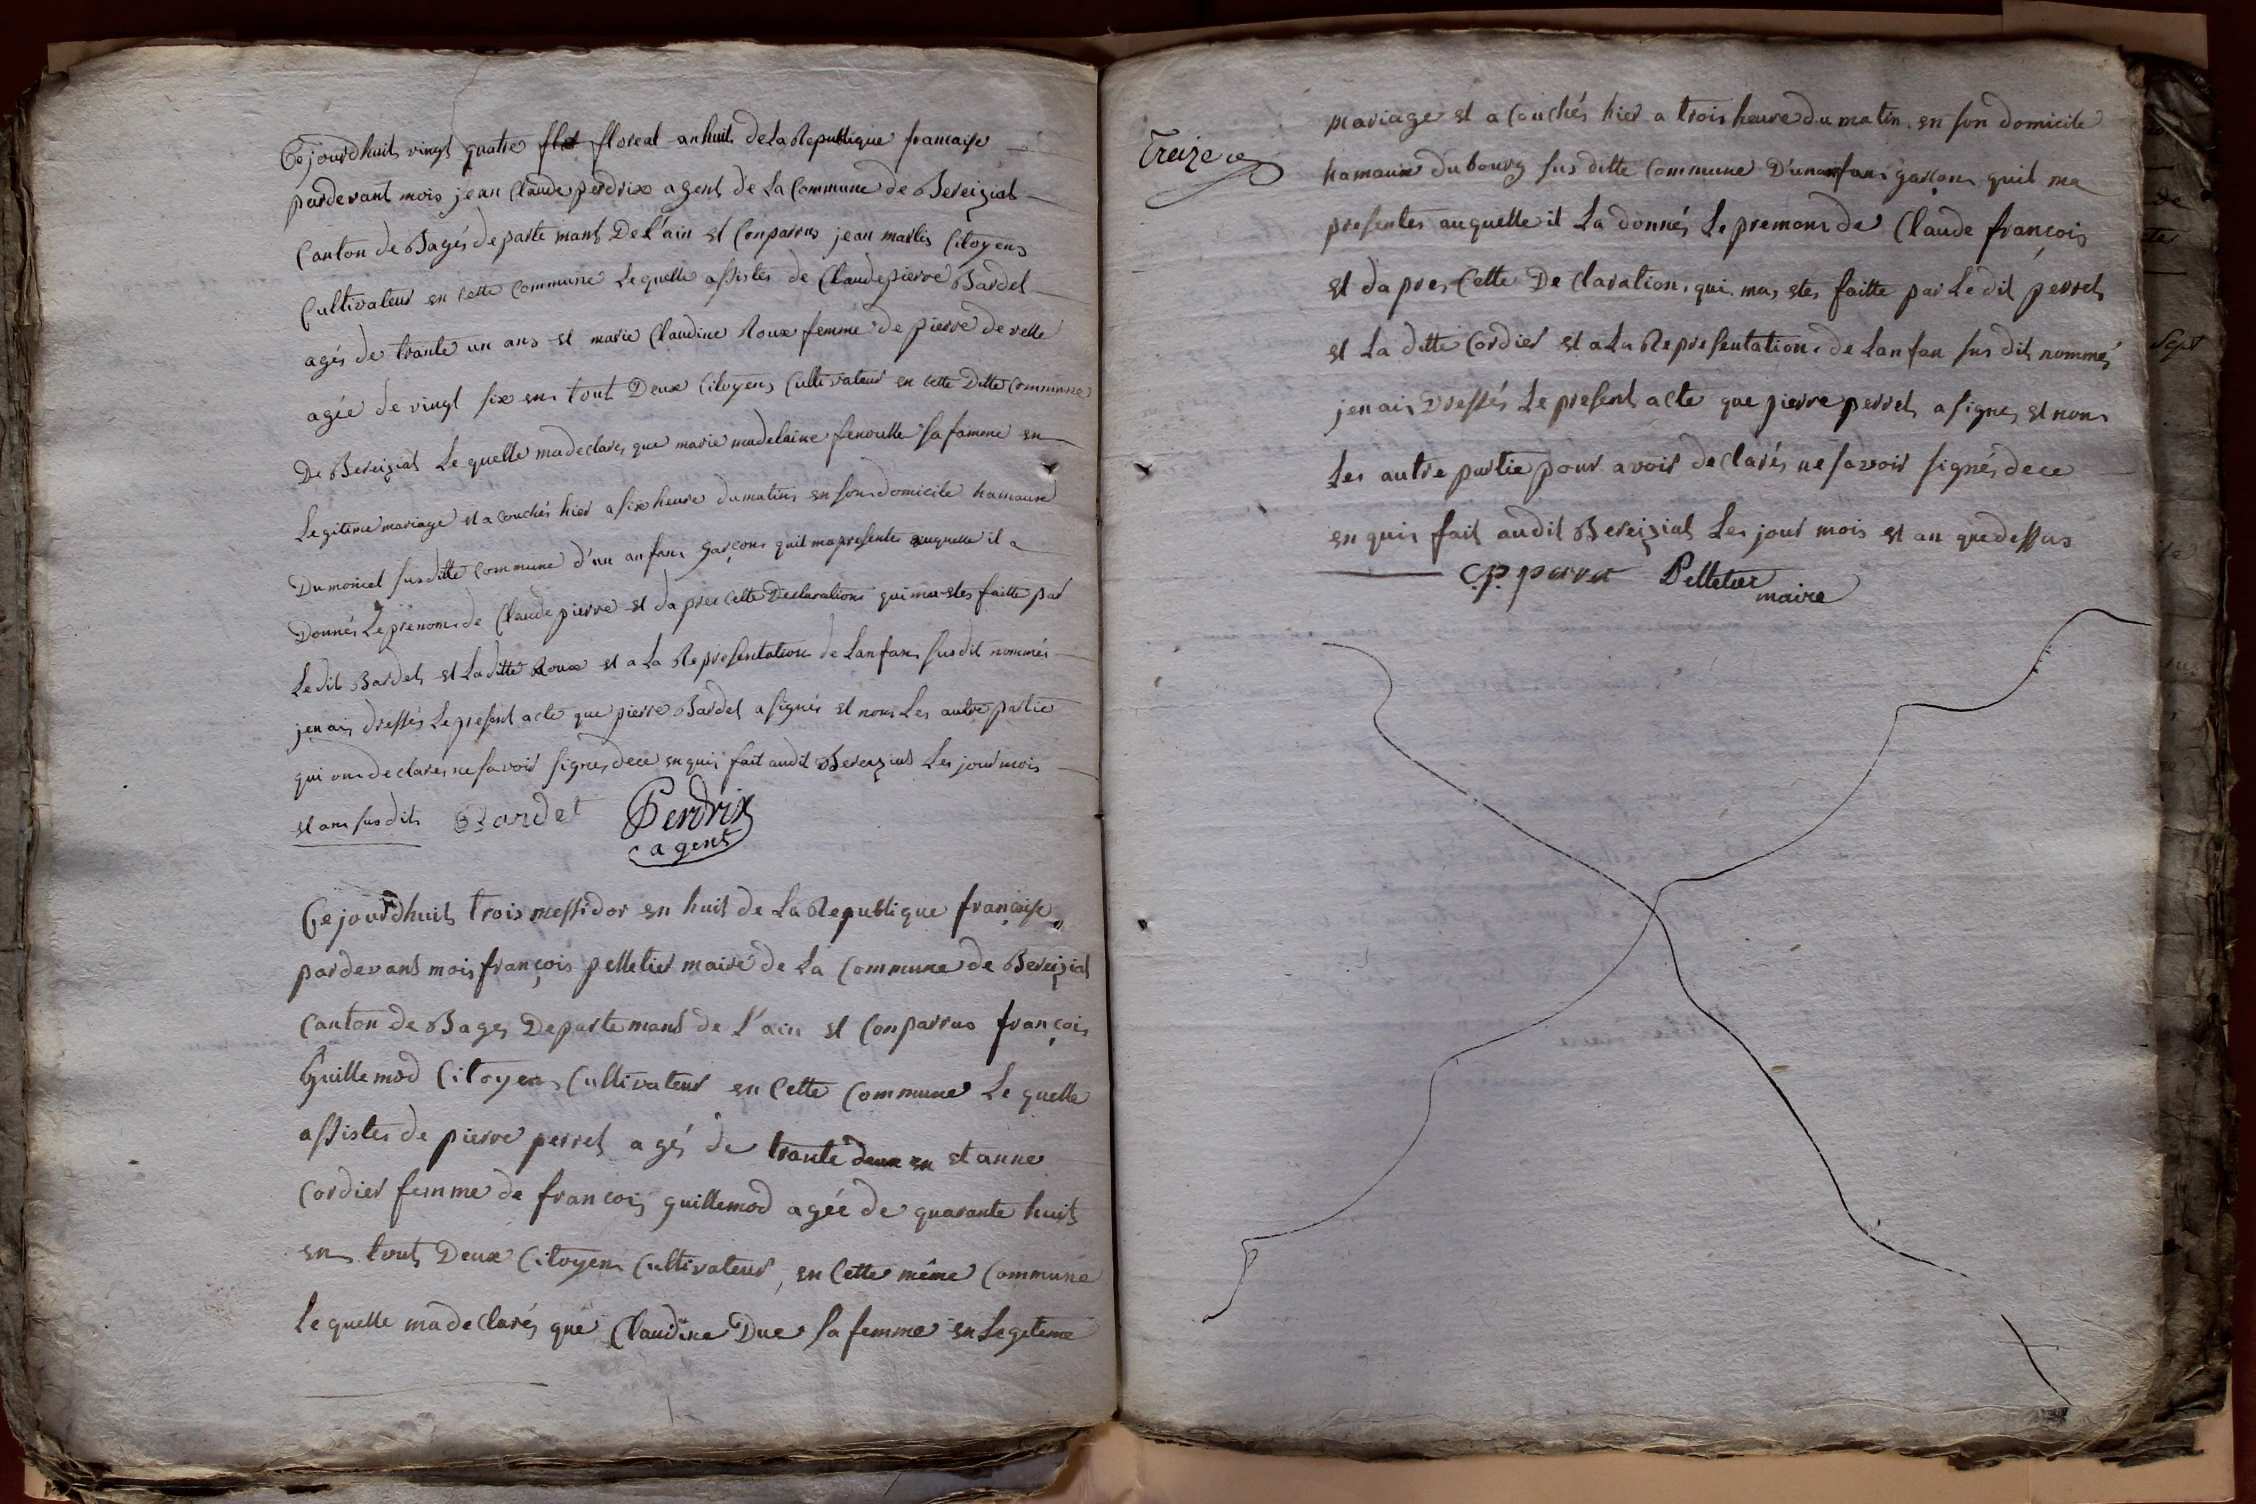 Cejourdhuit vingt quatre flo floreal an huit de La Republique francaise
pardevant mois jean Claude perdrix agent de La Commune de Bereiziat
Canton de Bagés departemant De l'ain et Conparrus jean marlis Citoyens
Cultivateur en cette Commune Lequelle assistes de Claude pierre Bardet
agés de trante un ans et marie Claudine Roux femme de pierre de velle
agée de vingt six ens tout Deux Citoyens Cultivateur en cette Ditte Commune
De Bereiziat Le quelle ma declares que marie madelaine fenouille sa famme en
Legiteme mariage et a couchés hier a six heure du matins en sons domicile hamaux
Du moncel susditte Commune d'un anfans garçons quil ma presentes auquelle il a
Donnés Le prenoms de Claude pierre et da pres cette Declarations qui ma etes faitte par
Le dit Bardet et La ditte Roux et a La Representations de Lanfans susdit nommés
jen ais dressés Le present acte que pierre Bardet a signés et nons Les autre partie
qui ons declares ne savoir signes dece enquis fait audit Bereiziat Les jour mois
et ans susdits Bardet Perdrix
agent
Cejourdhuit trois messidor en huit de La Republique françoise
pardevant mois françois pelletier maire de La Commune de Bereiziat
Canton de Bages Departemant de l'ain et Conparrus françois
Guillemod Citoyens Cultivateur en Cette Commune Le quelle
assistes de pierre perret agé de trante deux en et anne
Cordier femme de françois guillemod agée de quarante huit
ens tout Deux Citoyens Cultivateur, en Cette même Commune
Le quelle ma declarés que Claudine Due sa femme en Legiteme
Treize
mariage et a Couchés hier a trois heure du matin en son domicile
hamaux du bourg sus ditte Commune D'un anfans garçons quil ma
presentes auquelle il La donnés Le premons de Claude françois
et da pres Cette De Clarations qui mas etes faitte par Le dit perret
et La ditte Cordier et a La Representations de Lanfan sus dit nommés
jen ais Dressés Le present acte que pierre perret a signes et nons
Les autre partie pour avoir declarés ne savoir signés dece
enquis fait audit Bereiziat Les jour mois et an que dessus
C.p. perret Pelletier
maire